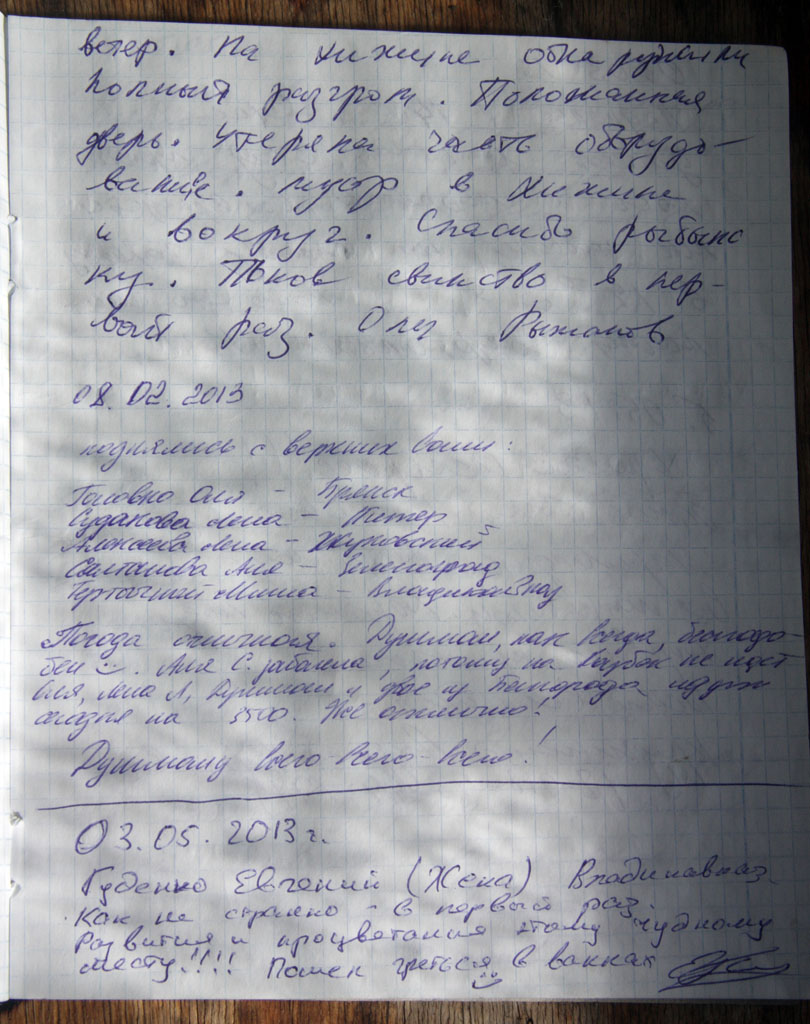 ветер. На хижине обнаружили
полный разгром. Поломанная
дверь. Утеряна часть оборудо-
вание. мусор в хижине
и вокруг. Спасибо рыбыно
ку. Такое свинство в пер-
вый раз. Олег Рыжанов
08.02.2013
поднялись с верхних ванн:
Головко Оля - Брянск
Судакова Лена - Питер
Алексеева Лена - Жуковский
Аня - Зеленоград
Миша - Владикавказ
Погода отличная. Душман, как всегда, бесподо-
бен. Аня С. заболела, потому на не идет
Оля, Лена А, Душман и двое из Белгорода идут
сегодня на 3500. Все отлично!
Душману всего-всего-всего!
03.05.2013 г.
Гуденко Евгений (Жека) Владикавказ.
Как не странно - в первый раз.
Развития и процветания этому чудному
месту!!!! Пошёл греться в ваннах